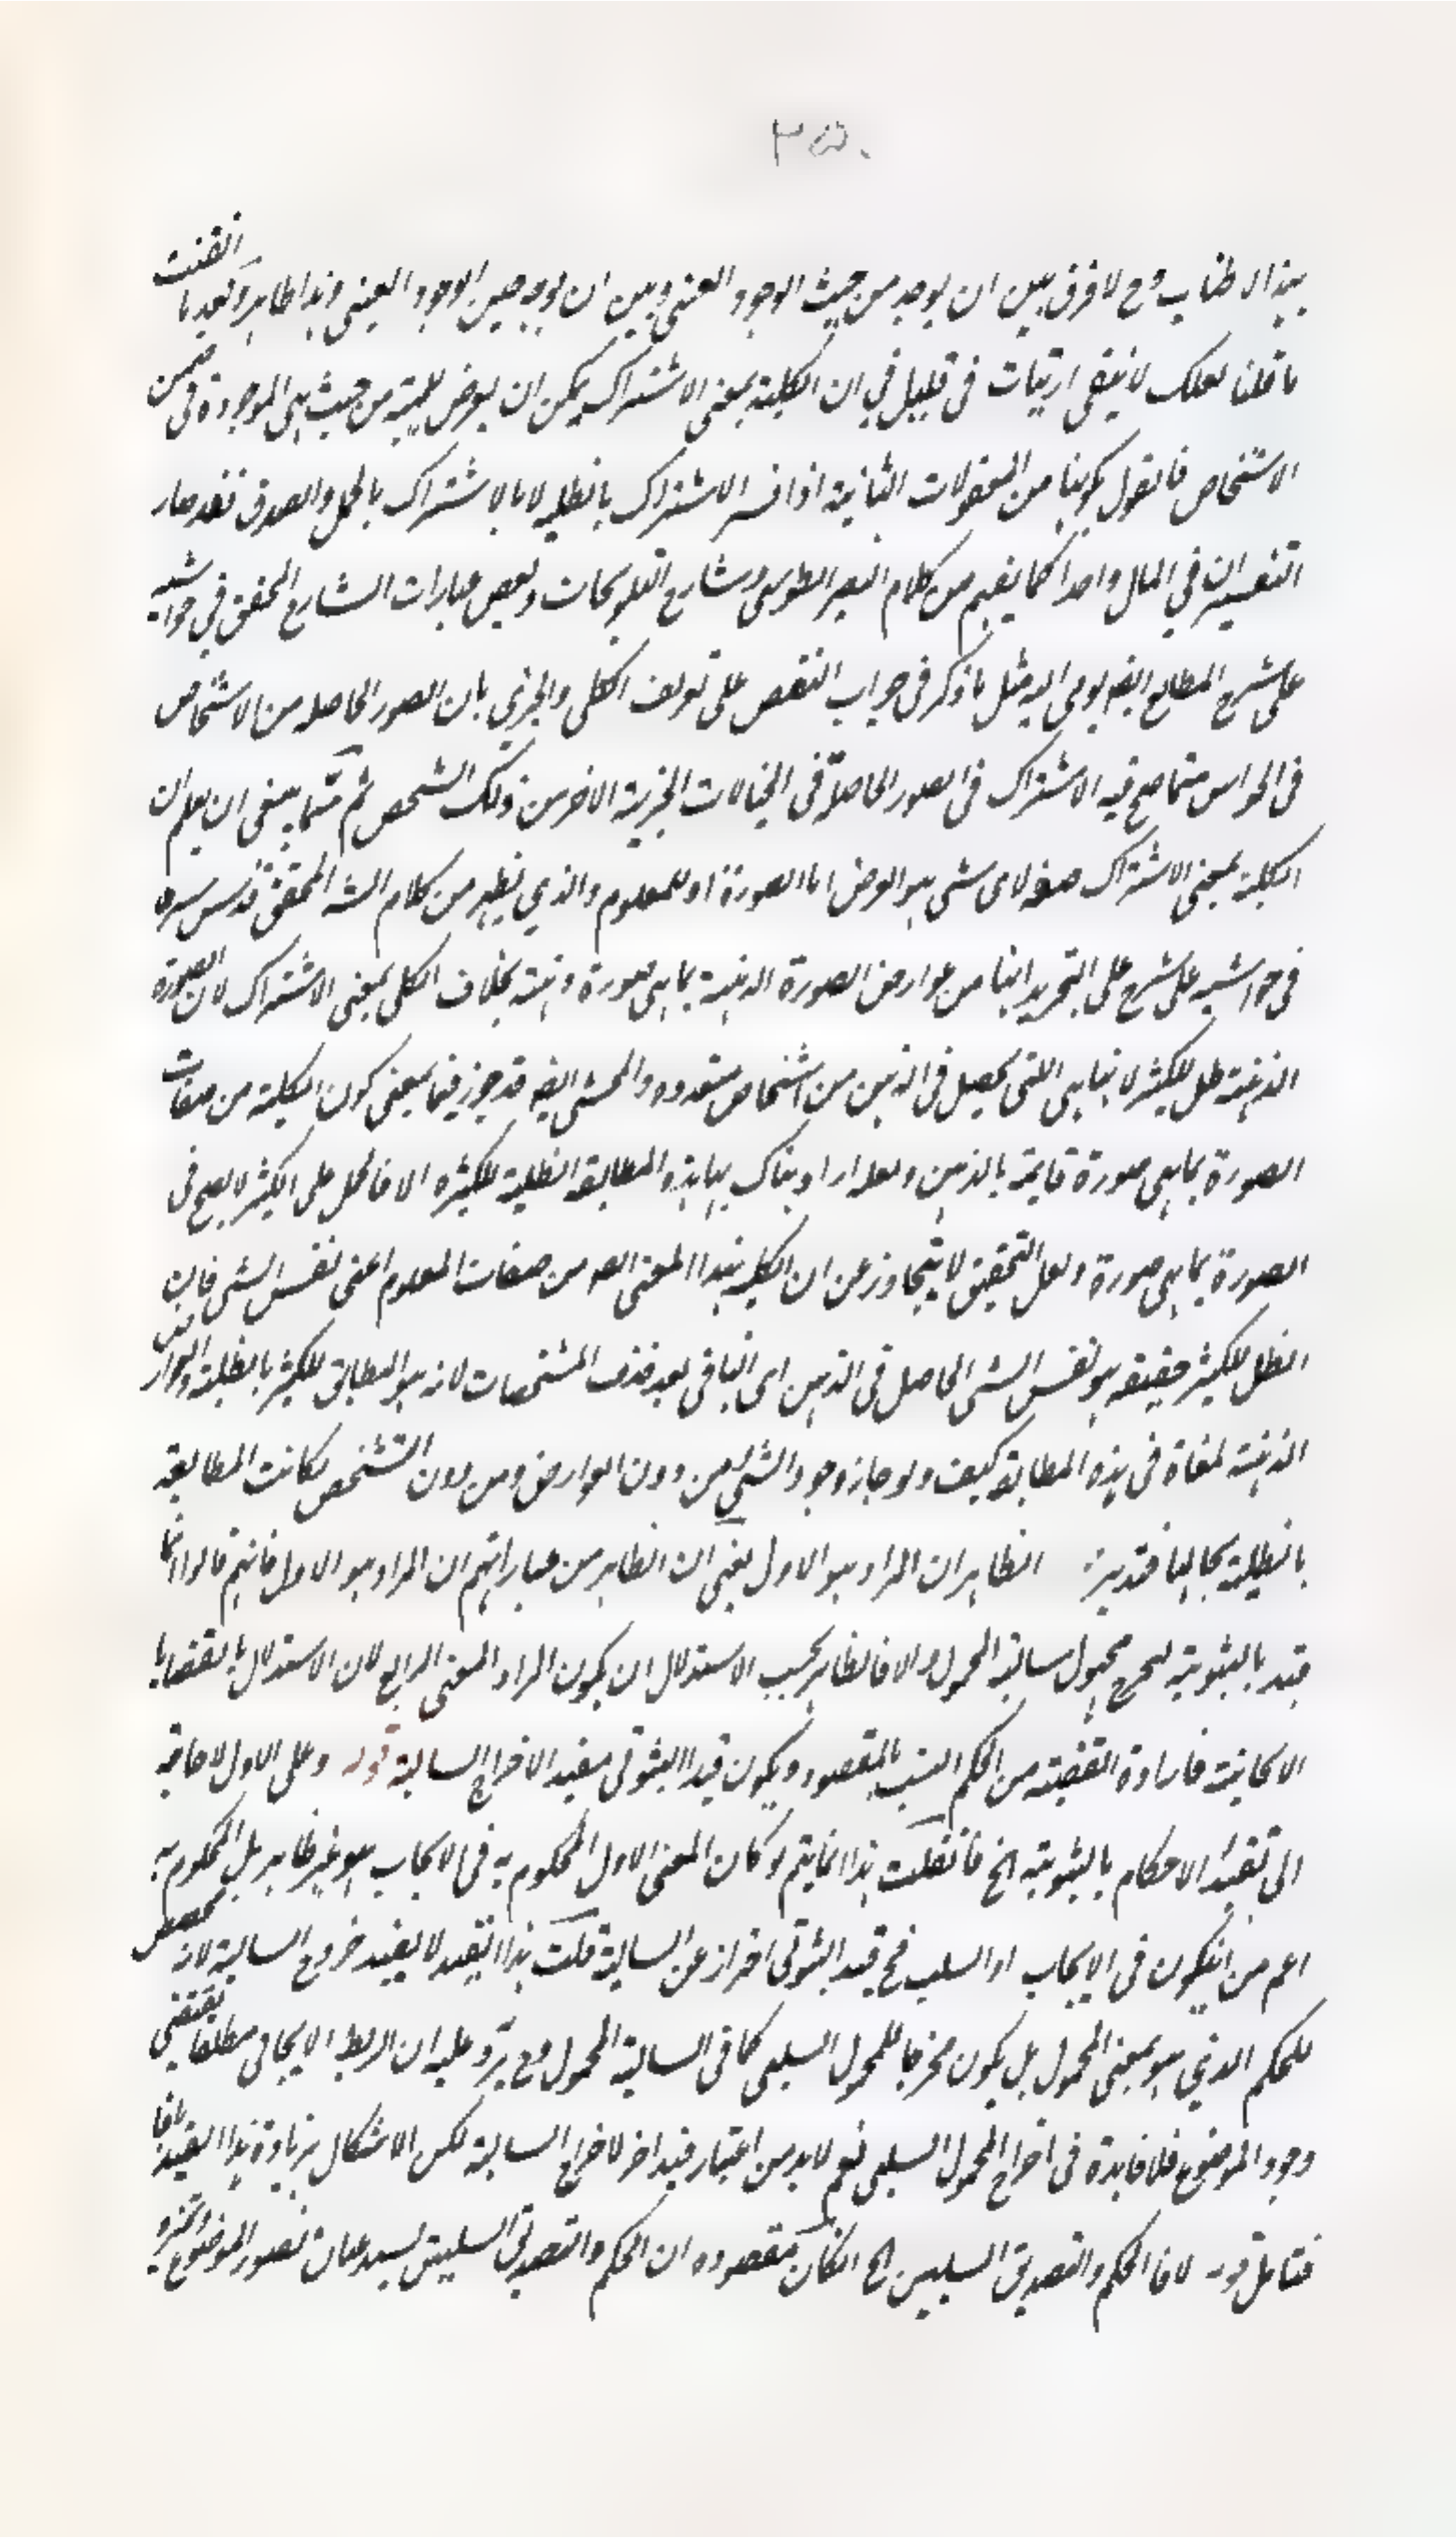 ٢٥٠
بهذا الاطناب وح لا فرق بين ان يوجد من حيث الوجود العيني وبين ان يوجد حين الوجود العيني وهذا ظاهر وبعد ما اتقنت
ما قلنا لعلك لا يبقى ارتياب في قليل في ان الكلية بمعنى الاشتراك يمكن ان يعرض للمهية من حيث هي الموجودة في ضمن
الاشخاص فالقول بكونها من المعقولات الثانية اذا فسر الاشتراك بالظلية لا بالاشتراك بالحمل والصدق فقد صار
التفسيران في المآل واحدا كما يفهم من كلام النصير الطوسي وشارح التلويحات وبعض عبارات الشارح المحقق في حواشيه
على شرح المطالع ايضا يومي اليه مثل ما ذكر في جواب النقض على تعريف الكلي والجزئي بان الصور الحاصلة من الاشخاص
في الحواس مما صح فيه الاشتراك في الصور الحاصلة في الخيالات الجزئية الاخر من ذلك الشخص ثم مما ينبغي ان يعلم ان
الكلية بمعنى الاشتراك صفة لاى شي هو العرض اما الصورة او للمعلوم والذي يظهر من كلام الشه المحقق قدس سره
في حواشيه على شرح على التجريد انها من عوارض الصورة الذهنية بما هي صورة ذهنية بخلاف الكلي بمعنى الاشتراك لان الصورة
الذهنية ظل للكثرة لانها هي التي يحصل في الذهن من اشخاص متعدده والمحشي ايضه قد جوز فيما يجئ كون الكلية من صفات
الصورة بما هي صورة قايمة بالذهن ولعله اراد هناك بها هذه المطابقة الظلية للكثره والا فالحمل على الكثير لا يصح في
الصورة بما هي صورة ولعل التحقيق لا يتجاوز عن ان الكلية بهذا المعنى ايضه من صفات المعلوم اعني نفس الشي فان
الظل للكثير حقيقة هو نفس الشي الحاصل في الذهن اى الباقي بعد حذف المشخصات لانه هو المطابق للكثير بالظلية والعوارض
الذهنية ملغاة في هذه المطابقة كيف ولو جاز وجود الشي من دون العوارض ومن دون التشخص لكانت المطابقة
بالظلية بحالها فتدبر الظاهر ان المراد هو الاول يعني ان الظاهر من عباراتهم ان المراد هو الاول فانهم قالوا انما
قيد بالثبوتية ليخرج محمول سالبة المحمول والا فالظاهر بحسب الاستدلال ان يكون المراد المعنى الرابع لان الاستدلال بالقضايا
الايجابية فارادة القضية من الحكم انسب بالمقصود ويكون قيد الثبوتي مفيد الاخراج السالبة قوله وعلى الاول لا حاجة
الى تقييد الاحكام بالثبوتية الخ فانقلت هذا انما يتم لو كان المعنى الاول المحكوم به في الايجاب هو غير ظاهر بل المحكوم به
اعم من ان يكون في الايجاب او السلب فح قيد الثبوتي احتراز عن السالبة قلت هذا التقييد لا يفيد خروج السالبة لانه تخصيص
للحكم الذي هو بمعنى المحمول بل يكون مخرجا للمحمول السلبي كما في السالبة المحمول وح يرد عليه ان الربط الايجابي مطلقا يقتضي
وجود الموضوع فلا فايدة في اخراج المحمول السلبي نعم لابد من اعتبار قيد اخر لاخراج السالبة لكن الاشكال بزيادة هذا القيد باق
فتامل قوله لان الحكم والتصديق السلبيين الخ انكان مقصوده ان الحكم والتصديق السلبيين يستدعيان تصور الموضوع